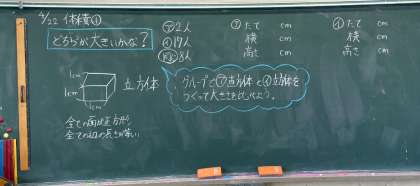 4/22 体積①
どちらが大きいかな？
㋐2人
㋑19人
同じ8人
㋐たて cm
横 cm
高さ cm
㋑たて cm
横 cm
高さ cm
1cm
1cm
1cm
立方体
グループで㋐直方体と㋑立方体を
つくって大きさを比べよう。
全ての面が正方形
全ての辺の長さが等しい